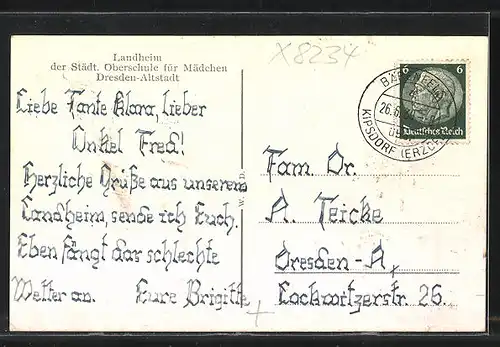 Landheim
der Städt. Oberschule für Mädchen
Dresden-Altstadt
Liebe Tante Klara, Lieber
Onkel Fred!
Herzliche Grüße aus unserem
Landheim, sende ich Euch.
Eben fängt das schlechte
Wetter an. Eure Brigitte
X8234
6 6
Deutsches Reich
26.6.
KIPSDORF (ERZG
Fam. Dr.
A. Teicke
Dresden-A,
Lockwitzerstr. 26.